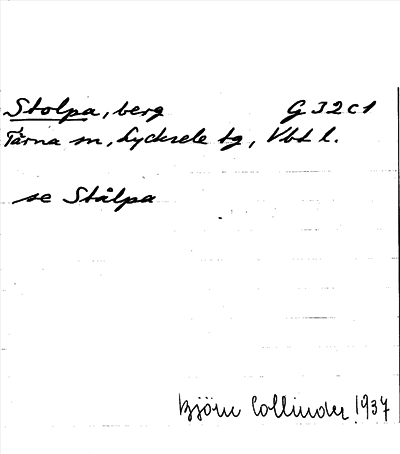 Stolpa, berg G 32 c 1
Tärna sn, Lycksele tg, Vbt l.
se Stålpa
Björn Collinder 1937